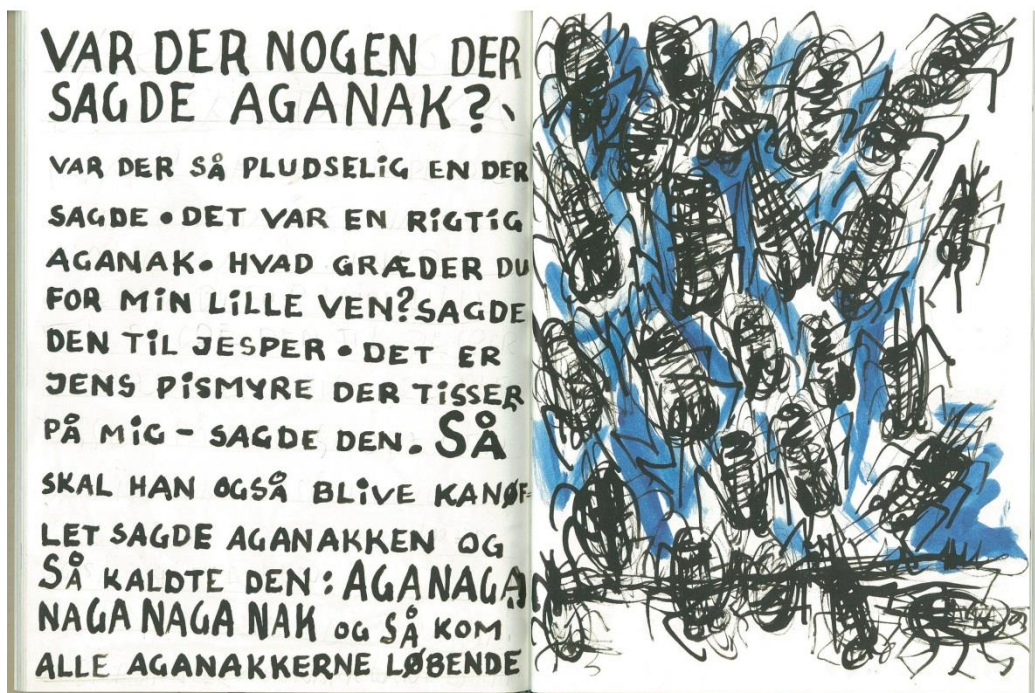 VAR DER NOGEN DER
SAGDE AGANAK?
VAR DER SÅ PLUDSELiG EN DER
SAGDE • DET VAR EN RiGTiG
AGANAK • HVAD GRÆDER DU
FOR MiN LiLLE VEN? SAGDE
DEN TiL JESPER • DET ER
JENS PiSMYRE DER TiSSER
PÅ MiG – SAGDE DEN. SÅ
SKAL HAN OGSÅ BLIVE KANØF=
LET SAGDE AGANAKKEN OG
SÅ KALDTE DEN: AGANAGA
NAGA NAGA NAK OG SÅ KOM
ALLE AGANAKKERNE LØBENDE